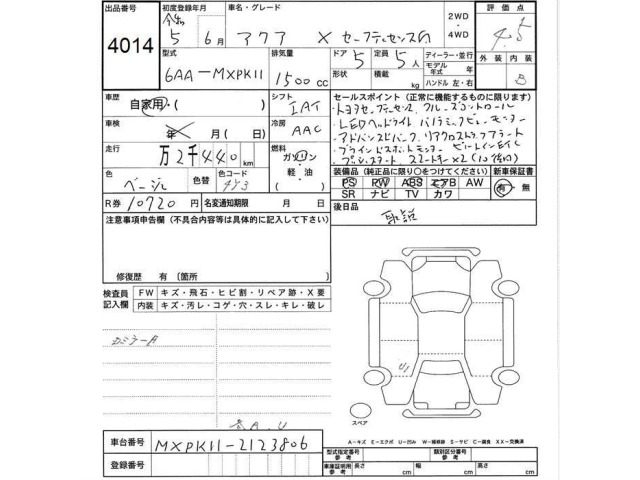 出品番号 初度登録年月 車名・グレード 評価点
4014
5年 6月 アクア X セーフティセンスG 2WD ・ 4WD 4.5
型式 排気量 ドア 定員 ディーラー・並行 外装 内装
6AA-MXPK11 1500cc 5 形状 5人 積載 kg モデル年式 年 ハンドル 左・右 B
車歴 自家用・( ) シフト IAT
セールスポイント(正常に機能するものに限ります)
・トヨタセーフティセンス、クルーズコントロール
・LEDヘッドライト パノラミックビューモニター
車検 年 月(日) 冷房 AAC
・アドバンスドパーク、リアクロストラフィックアラート
・ブラインドスポットモニター ビルトインETC
・プッシュスタート、スマートキーX2
走行 万2千440km 燃料 ガソリン・軽油( )
装備品(純正品に限り○をつけてください) 新車保証書
PS PW ABS エアB AW 有・無
SR ナビ TV カワ
色 ベージュ 色替 色コード 4Y3
R券 10720円 名変通知期限 月 日
後日品 取説
注意事項申告欄(不具合内容等は具体的に記入して下さい)
修復歴 有(箇所 )
検査員記入欄 FW キズ・飛石・ヒビ割・リペア跡・X要
内装 キズ・汚レ・コゲ・穴・スレ・キレ・破レ
U1
スペア
A-キズ E-エクボ U-凹み W-補修跡 S-サビ C-腐食 XX-交換済
車台番号 MXPK11-2123806
登録番号
型式指定番号 参考 類別区分番号 参考
車庫証明用 参考 長さ cm 幅 cm 高さ cm